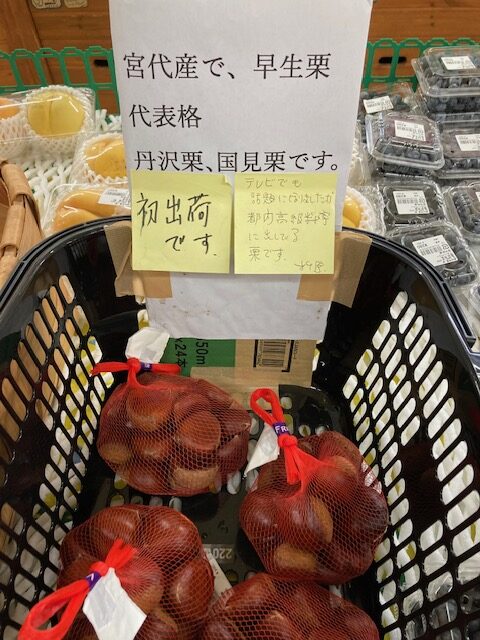 宮代産で、早生栗
代表格
丹沢栗、国見栗です。
初出荷
です。
テレビでも
話題になりましたが
都内高級料亭
に出してる
栗です。
50m
FR
220